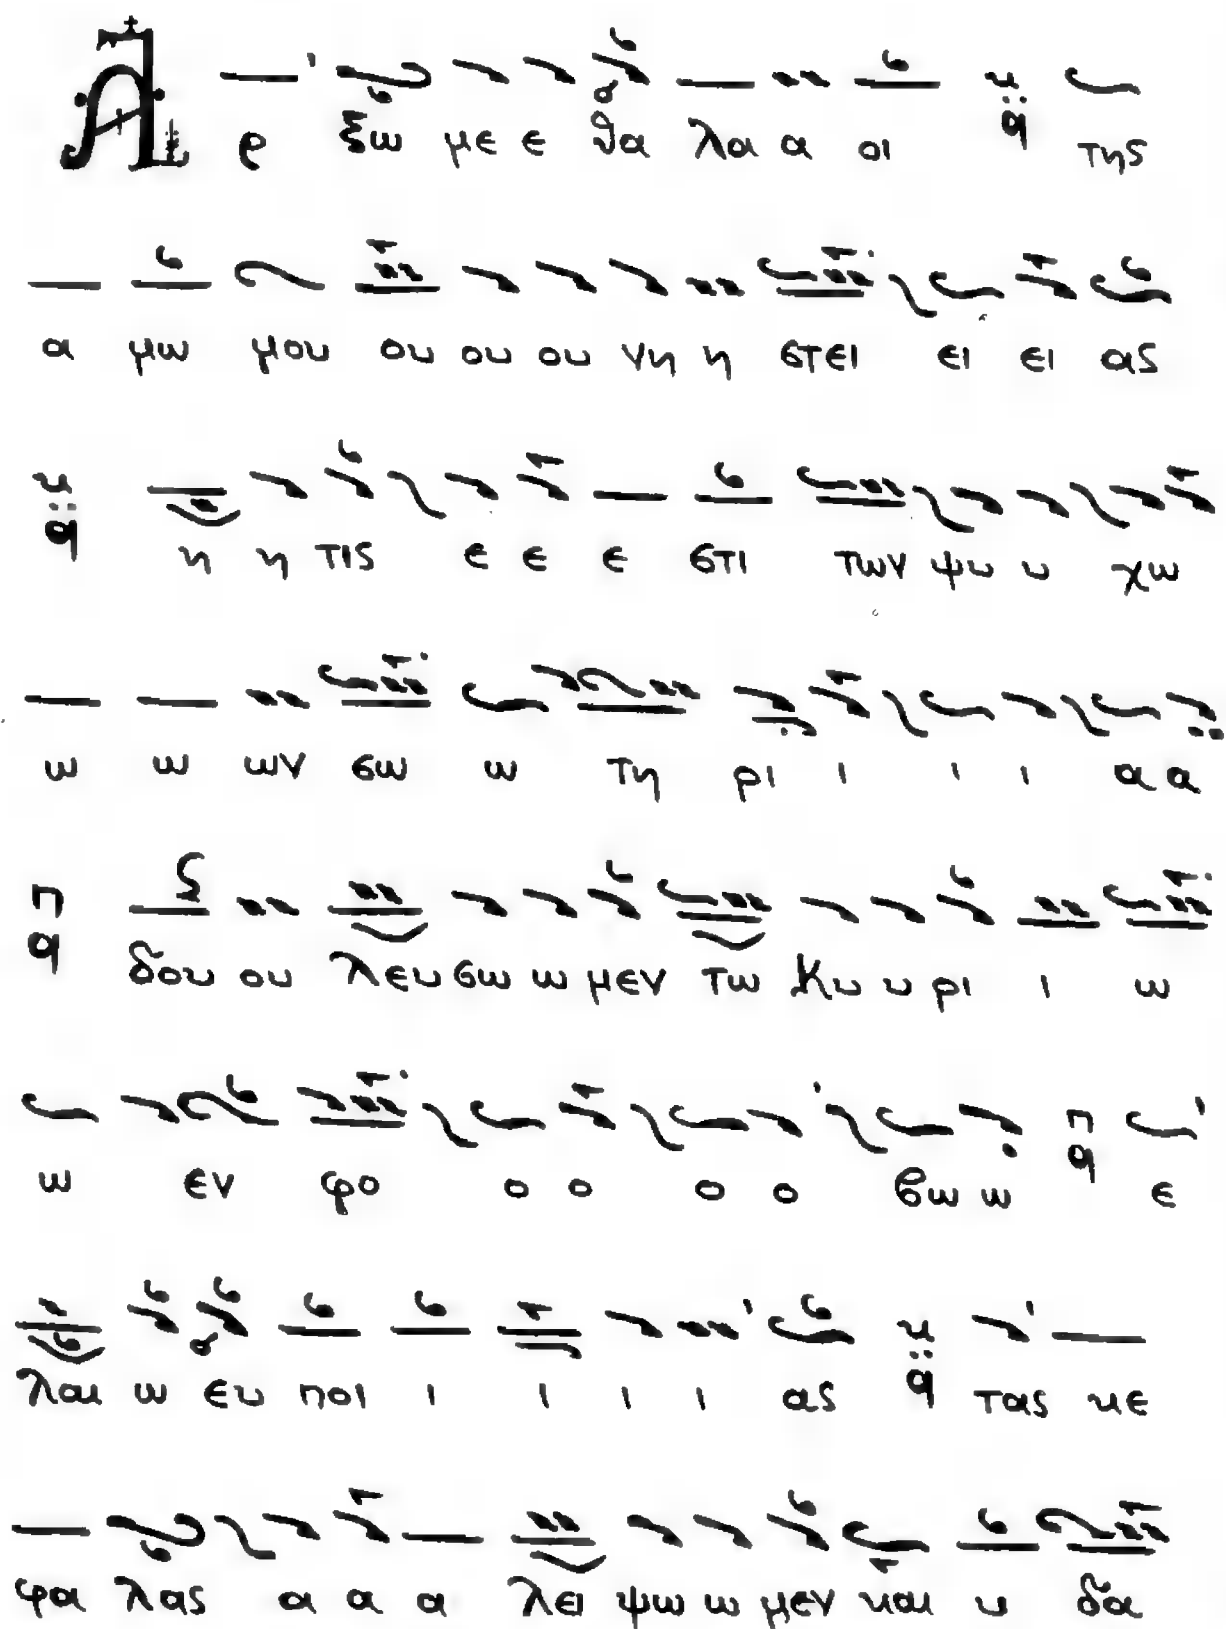 Α ρ ξω με ε θα λα α οι π̈ q της
α μω μου ου ου ου νη η στει ει ει ας
η η τις ε ε ε στι των ψυ υ χω
ω ω ων σω ω τη ρι ι ι ι α α
π q δου ου λευ σω ω μεν τω Κυ υ ρι ι ω
ω εν φο ο ο ο ο βω ω π q ε
λαι ω ευ ποι ι ι ι ι ας κ q τας κε
φα λας α α α λει ψω ω μεν και υ δα